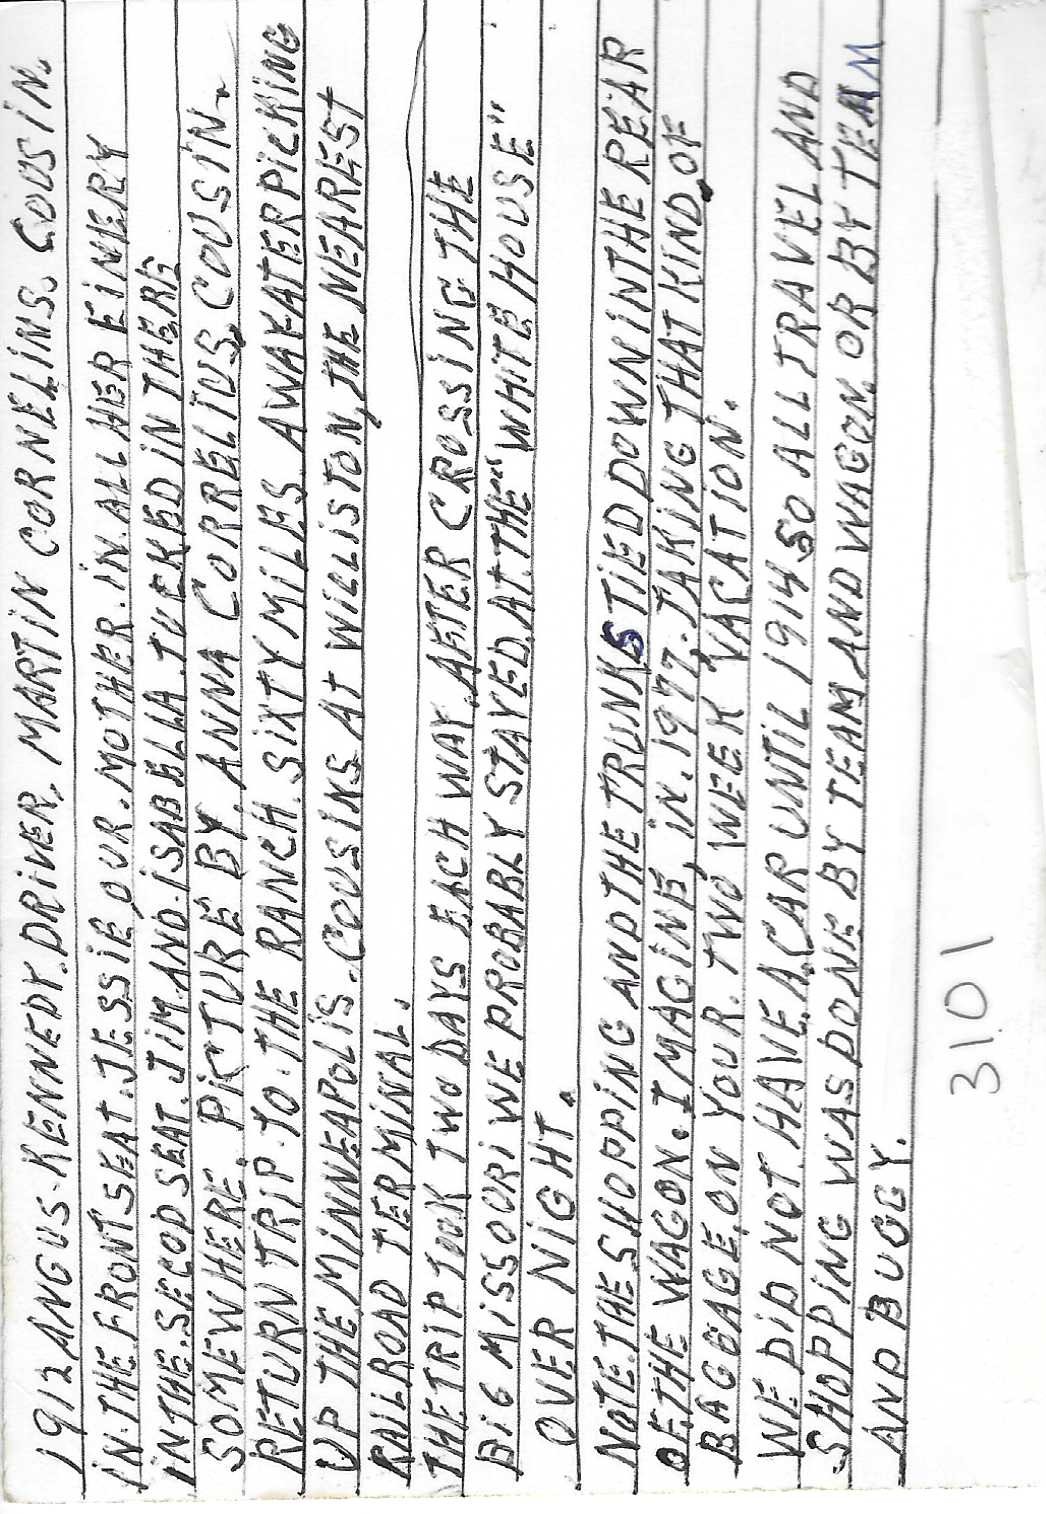 1912 ANGUS-KENNEDY. DRIVER, MARTIN CORNELINS. COUSIN.
IN THE FRONT SEAT. JESSIE, OUR. MOTHER. IN. ALL HER FINERY
IN THE. SECOD SEAT. JIM AND. ISABELLA. TUCKED IN THERE
SOMEWHERE. PICTURE BY. ANNA CORRELIUS, COUSIN.
RETURN TRIP. TO. THE RANCH. SIXTY MILES. AWAY ATER PICKING
UP THE MINNEAPOLIS. COUSINS. At WILLISTON, THE NEAREST
RAILROAD TERMINAL.
THE TRIP TOOK TWO DAYS EACH WAY, AFTER CROSSING THE
BIG MISSOURI WE PROBABLY STAYED. AT. THE "WHITE HOUSE"
OVER NIGHT.
NOTE. THE SHOPPING AND THE TRUNKS TIED DOWN IN THE REAR
OF THE WAGON. IMAGINE, IN. 1977. TAKING THAT KIND OF
BAGGAGE, ON YOUR. TWO WEEK VACATION.
WE DID NOT. HAVE. A. CAR UNTIL 1914 SO ALL TRAVEL AND
SHOPPING WAS DONE BY TEAM AND WAGON OR BY TEAM
AND BUGGY.
3101